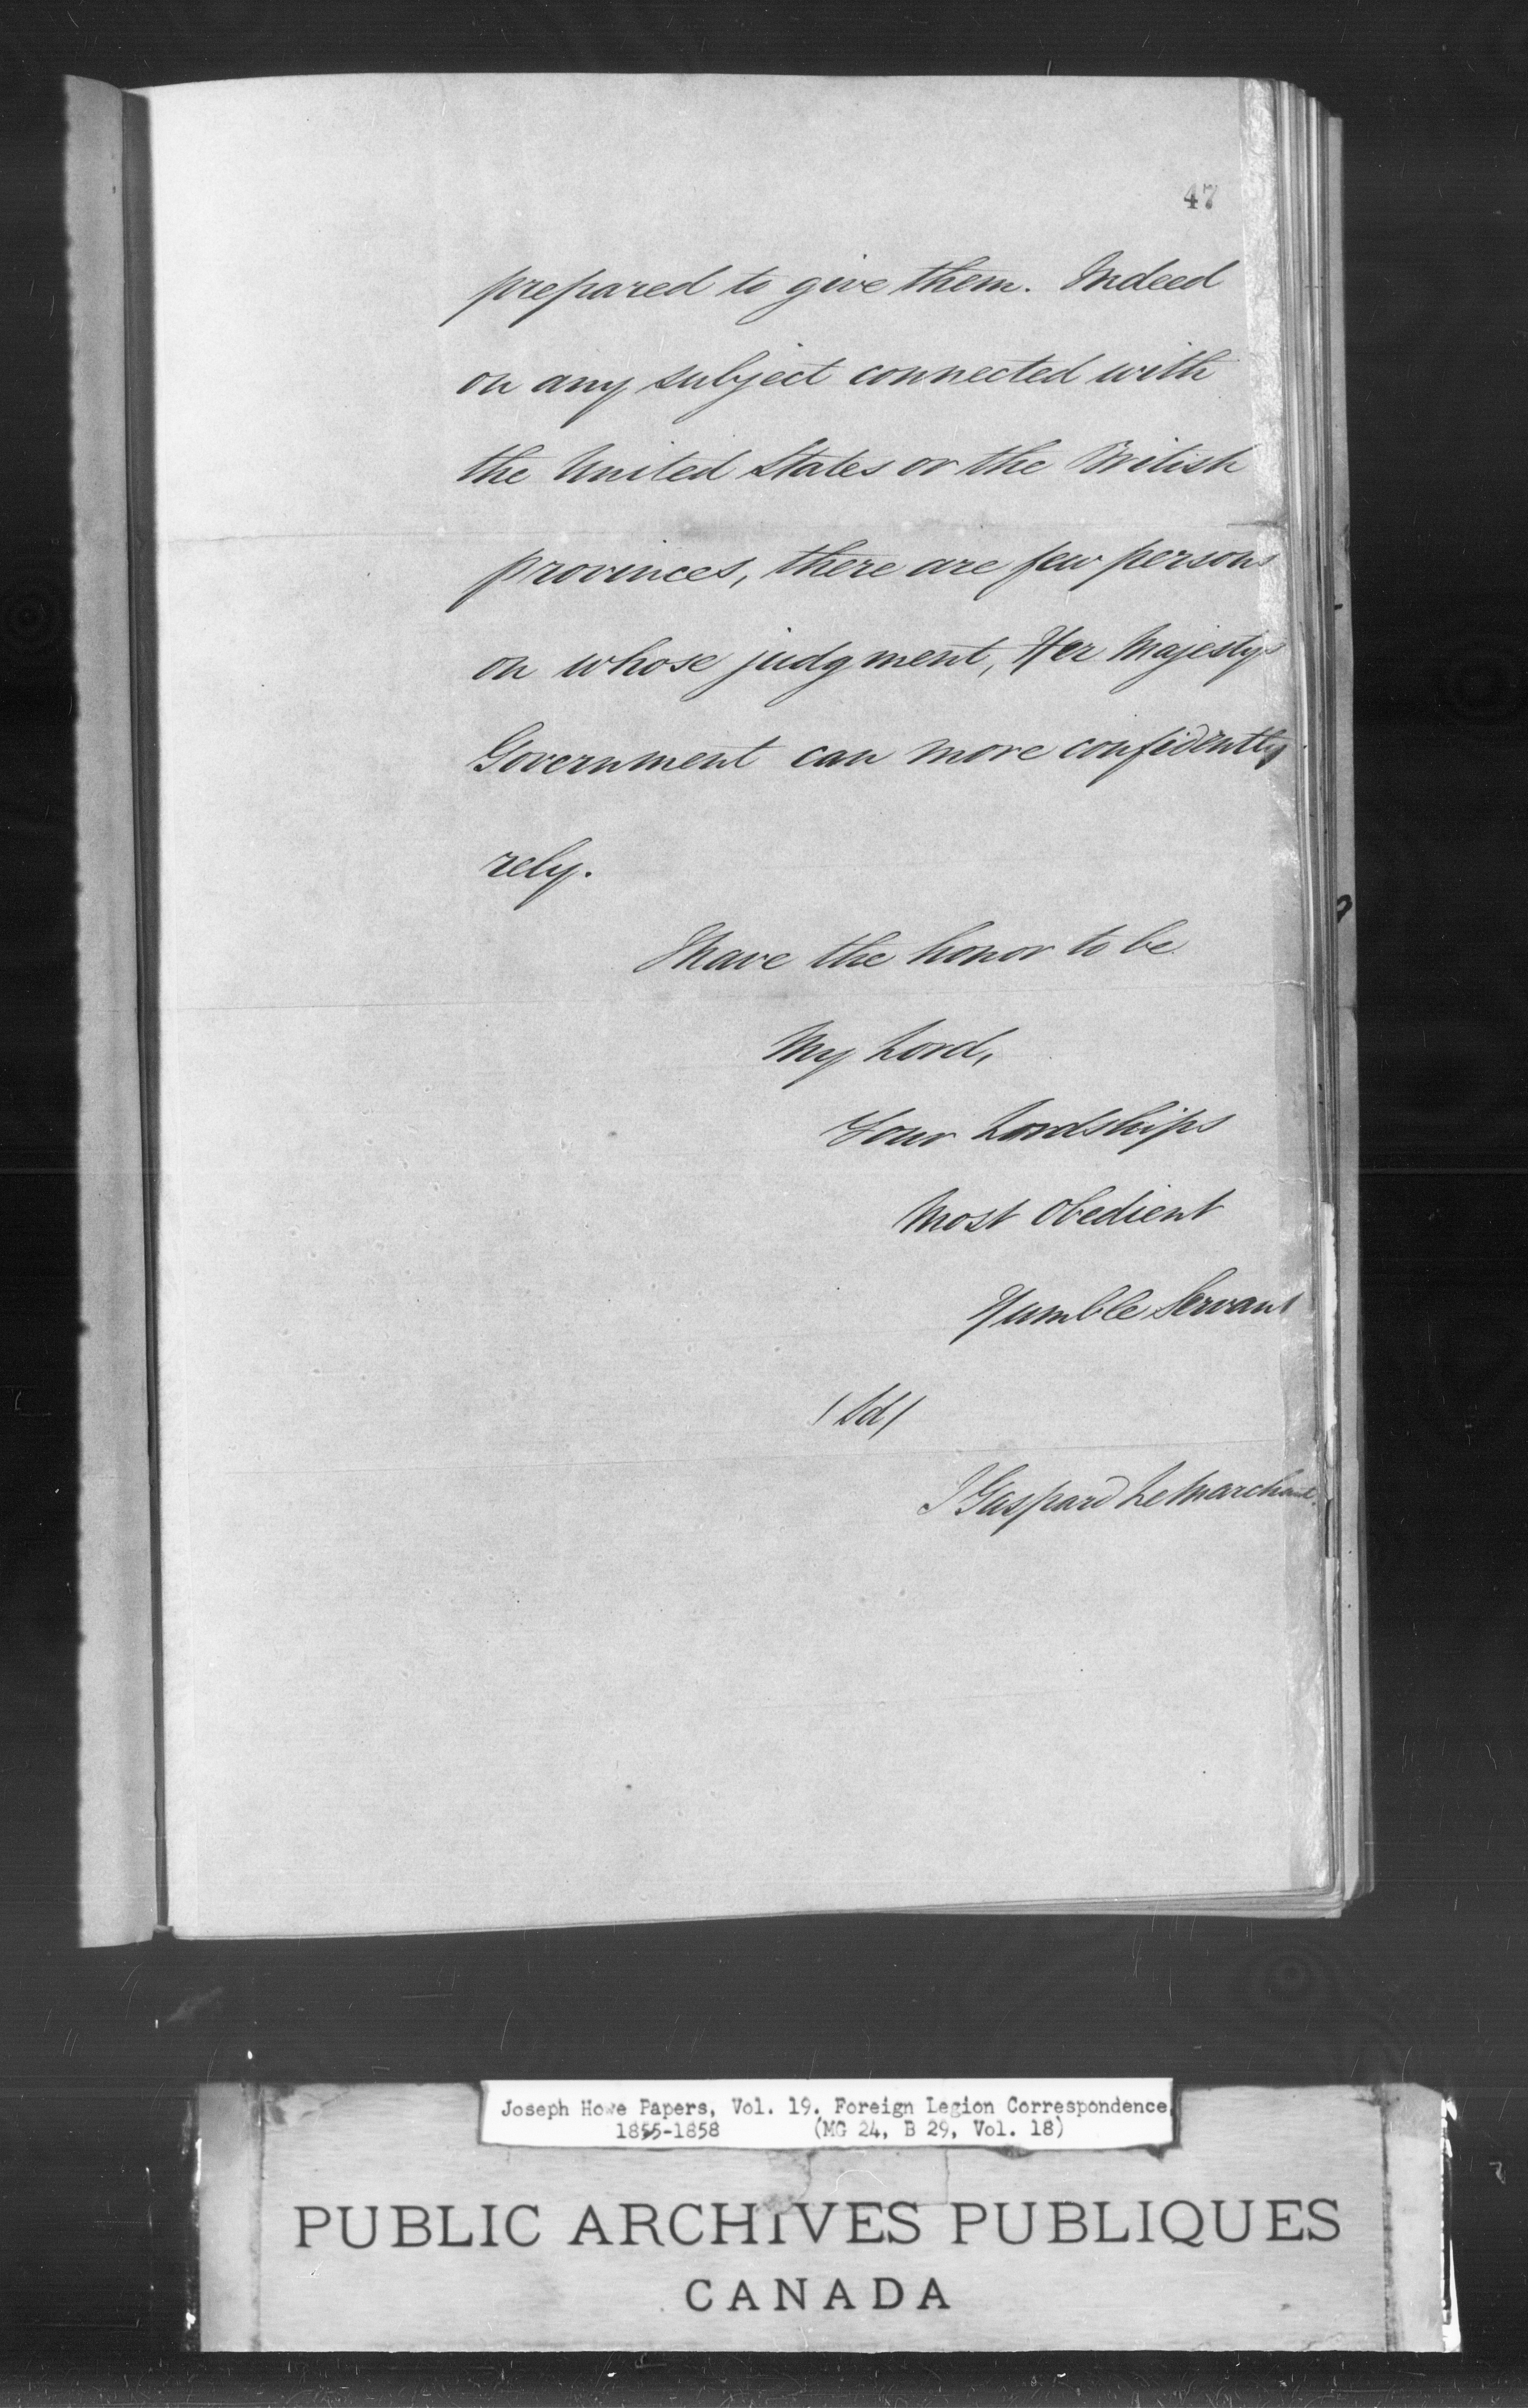 47
prepared to give them. Indeed
on any subject connected with
the United States or the British
provinces, there are few persons
on whose judgment, Her Majestys
Government can more confidently
rely.
I have the honor to be
My Lord,
Your Lordships
Most Obedient
Humble Servant
/Sd/
J Gaspard LeMarchant.
Joseph Howe Papers, Vol. 19. Foreign Legion Correspondence,
1855-1858 (MG 24, B 29, Vol. 18)
PUBLIC ARCHIVES PUBLIQUES
CANADA